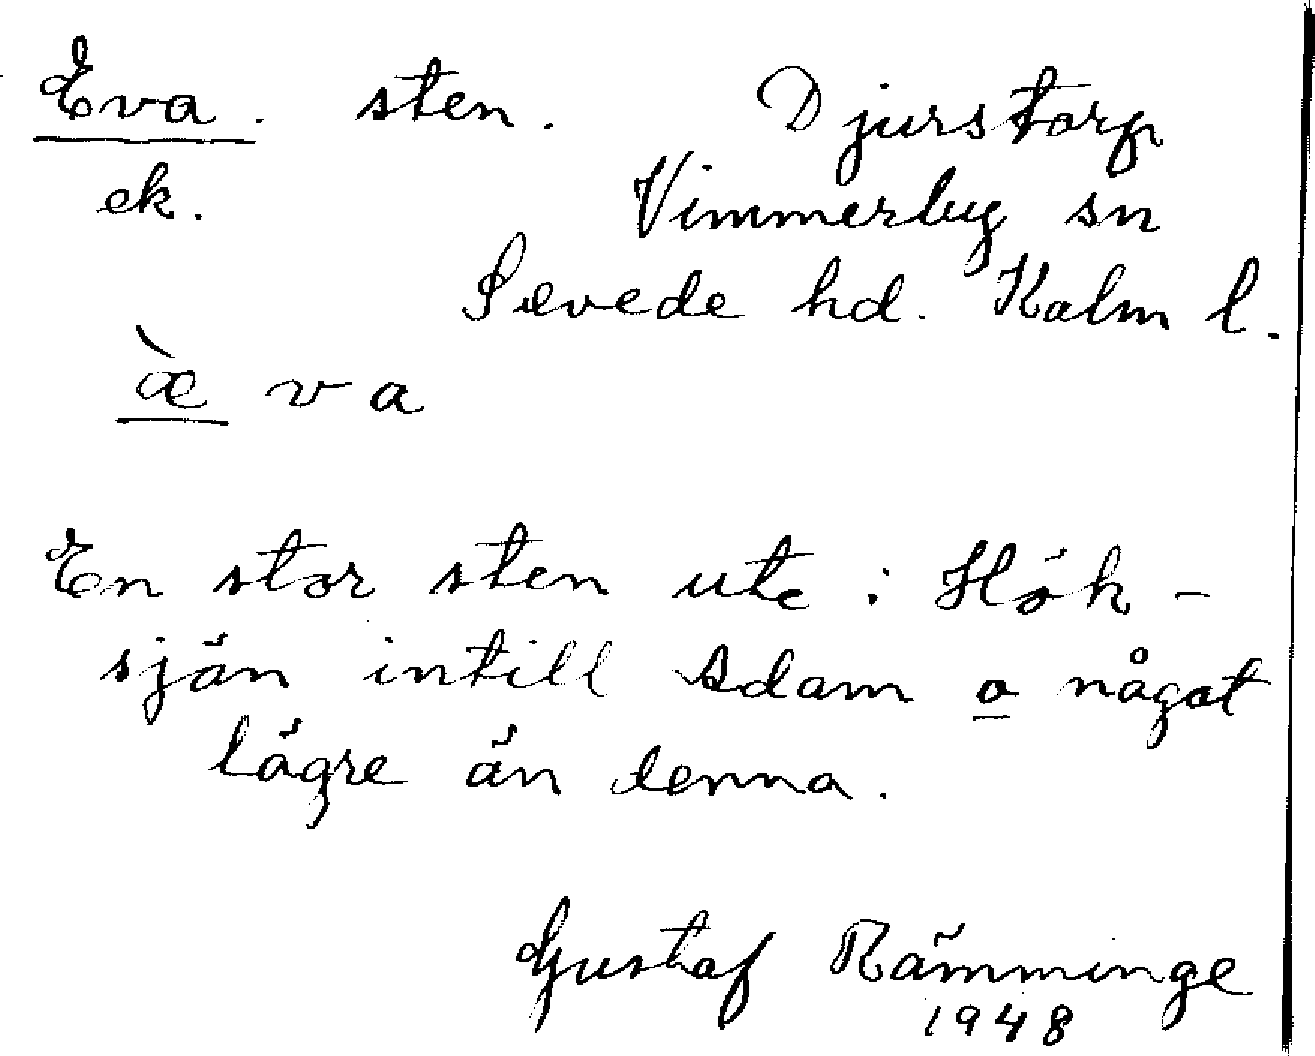 Eva. sten. Djurstorp
ek. Vimmerby sn
Sevede hd. Kalm l.
æ̀ v a
En stor sten ute i Hök-
sjön intill Adam o något
lägre än denna.
Gustaf Rämminge
1948